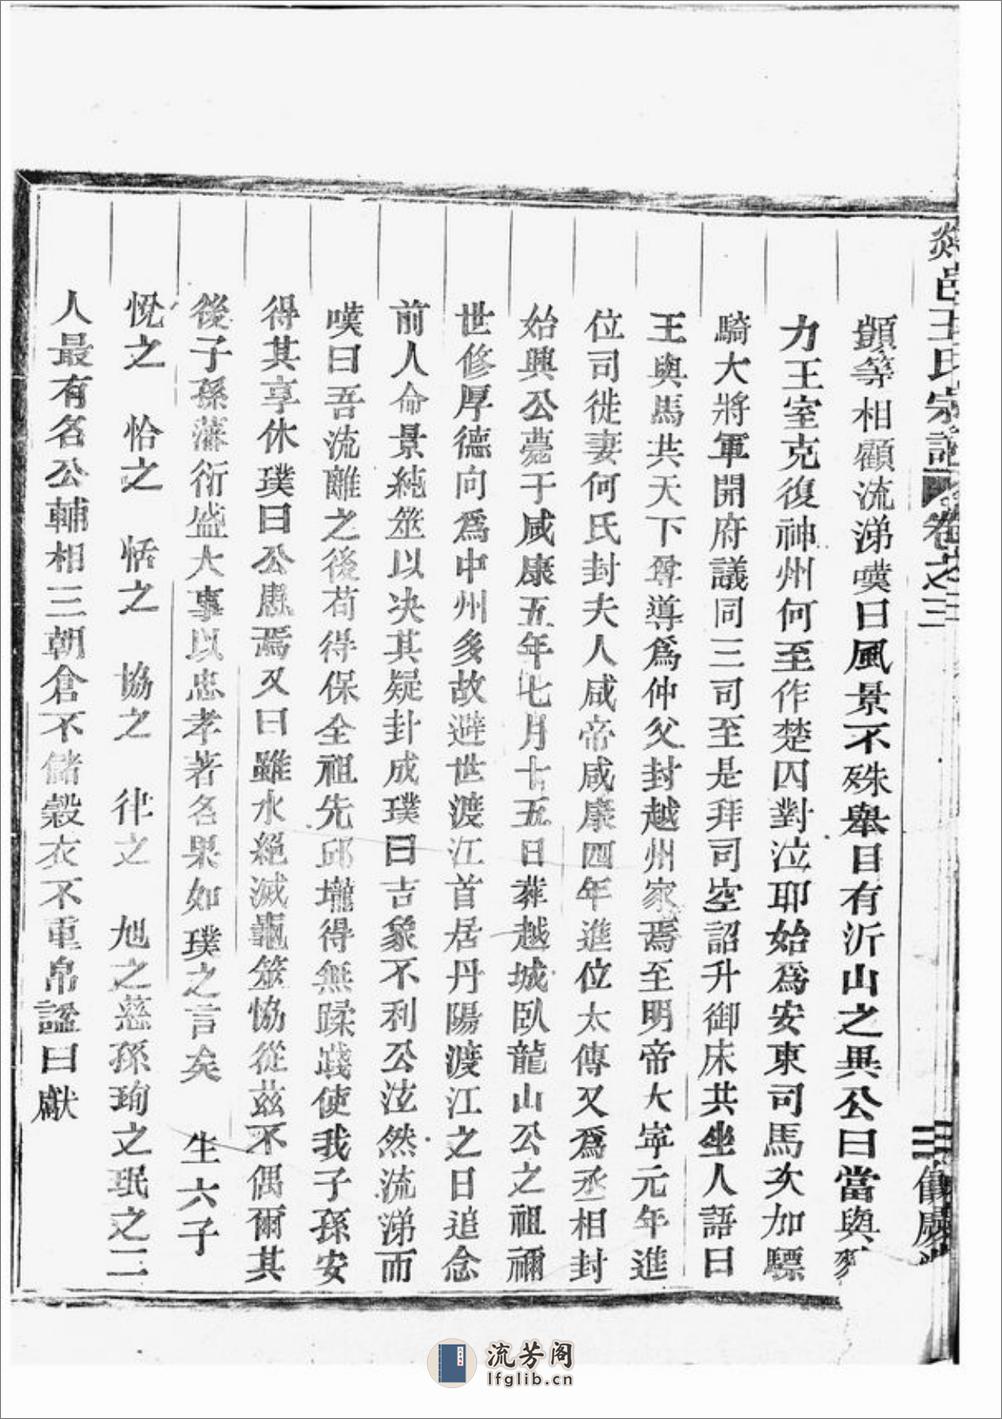 邑王氏宗譜 卷之三
顗等相顧流涕嘆曰風景不殊舉目有沂山之異公曰當與
力王室克復神州何至作楚囚對泣耶始爲安東司馬次加驃
騎大將軍開府議同三司至是拜司空詔升御床共坐人語曰
王與馬共天下尊導爲仲父封越州家焉至明帝大寧元年進
位司徙妻何氏封夫人咸帝咸康四年進位太傳又爲丞相封
始興公薨于咸康五年七月十五日葬越城臥龍山公之祖禰
世修厚德向爲中州多故避世渡江首居丹陽渡江之日追念
前人命景純筮以决其疑封成璞曰吉象不利公泫然流涕而
嘆曰吾流離之後苟得保全祖先邱壠得無蹂踐使我子孫安
得其享休璞曰公慮焉又曰雖水絕滅龜筮恊從茲不偶爾其
後子孫藩衍盛大事以忠孝著名果如璞之言矣 生六子
悅之 恰之 恬之 協之 律之 旭之慈孫珣之珉之二
人最有名公輔相三朝倉不儲穀衣不重帛謚曰獻